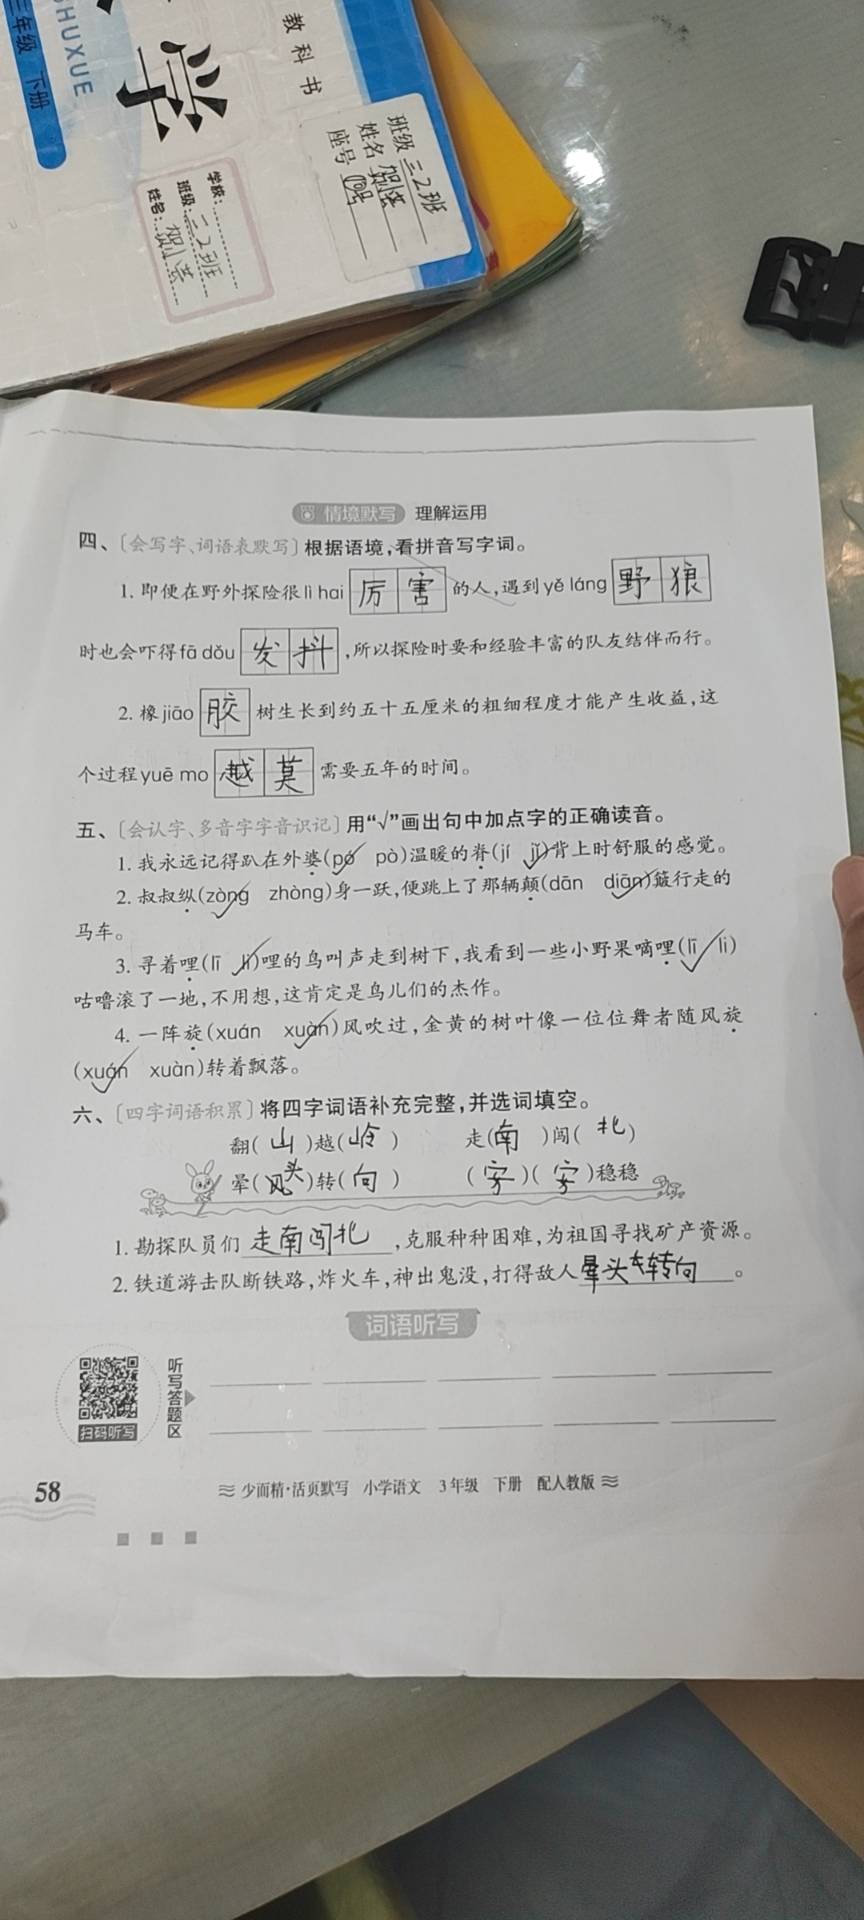 三年级 下册
SHUXUE
学
教科书
班级 三2班
姓名 贺小芸
座号
学校：
班级：三2班
姓名：贺小芸
情境默写 理解运用
四、〔会写字、词语表默写〕根据语境，看拼音写字词。
1. 即便在野外探险很lì hai 厉害 的人，遇到yě láng 野狼
时也会吓得fā dǒu 发抖，所以探险时要和经验丰富的队友结伴而行。
2. 橡jiāo 胶 树生长到约五十五厘米的粗细程度才能产生收益，这
个过程yuē mo 越莫 需要五年的时间。
五、〔会认字、多音字字音识记〕用“√”画出句中加点字的正确读音。
1. 我永远记得趴在外婆(pó pò)温暖的脊(jí jǐ)背上时舒服的感觉。
2. 叔叔纵(zòng zhòng)身一跃，便跳上了那辆颠(dān diān)簸行走的
马车。
3. 寻着哩(lī li)哩的鸟叫声走到树下，我看到一些小野果嘀哩(lī li)
咕噜滚了一地，不用想，这肯定是鸟儿们的杰作。
4. 一阵旋(xuán xuàn)风吹过，金黄的树叶像一位位舞者随风旋
(xuán xuàn)转着飘落。
六、〔四字词语积累〕将四字词语补充完整，并选词填空。
翻( 山 )越( 岭 ) 走( 南 )闯( 北 )
晕( 头 )转( 向 ) ( 安 )( 安 )稳稳
1. 勘探队员们 走南闯北，克服种种困难，为祖国寻找矿产资源。
2. 铁道游击队断铁路，炸火车，神出鬼没，打得敌人晕头转向。
词语听写
扫码听写
听写答题区
58
少而精·活页默写 小学语文 3年级 下册 配人教版